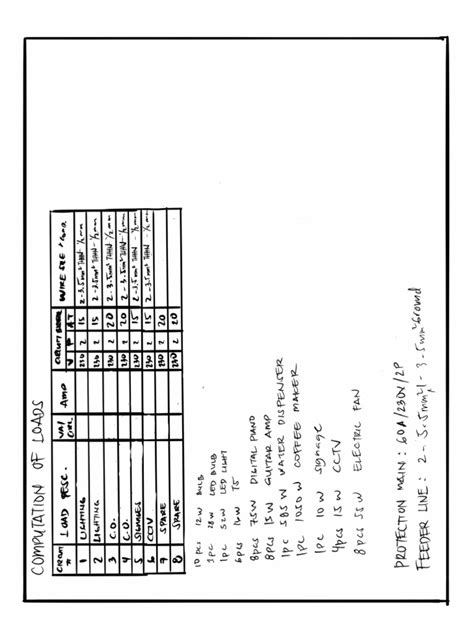 COMPUTATION OF LOADS
CIRCUIT # LOAD DESC. VA/ AMP CIRCUIT BREAKER WIRE SIZE
V P AT
1 LIGHTING 230 2 15 2-3.5mm² THHN - 1/2 mm
2 LIGHTING 230 2 15 2-3.5mm² THHN - 1/2 mm
3 C.O. 230 2 20 2-3.5mm² THHN - 1/2 mm
4 C.O. 230 2 20 2-3.5mm² THHN - 1/2 mm
5 SIGNAGES 230 2 15 2-3.5mm² THHN - 1/2 mm
6 CCTV 230 2 15 2-3.5mm² THHN - 1/2 mm
7 SPARE 230 2 20
8 SPARE 230 2 20
10 pcs 12W BULB
1pc 18W LED BULB
1pc 52W LED LIGHT
6pcs 16W T5
8pcs 75W DIGITAL PIANO
8pcs 15W GUITAR AMP
1pc 585W WATER DISPENSER
1pc 1050W COFFEE MAKER
1pc 10W signage
4pcs 15W CCTV
8pcs 55W ELECTRIC FAN
PROTECTION MAIN: 60A/230V/2P
FEEDER LINE: 2- 5.5mm²/1 - 3.5mm² Ground